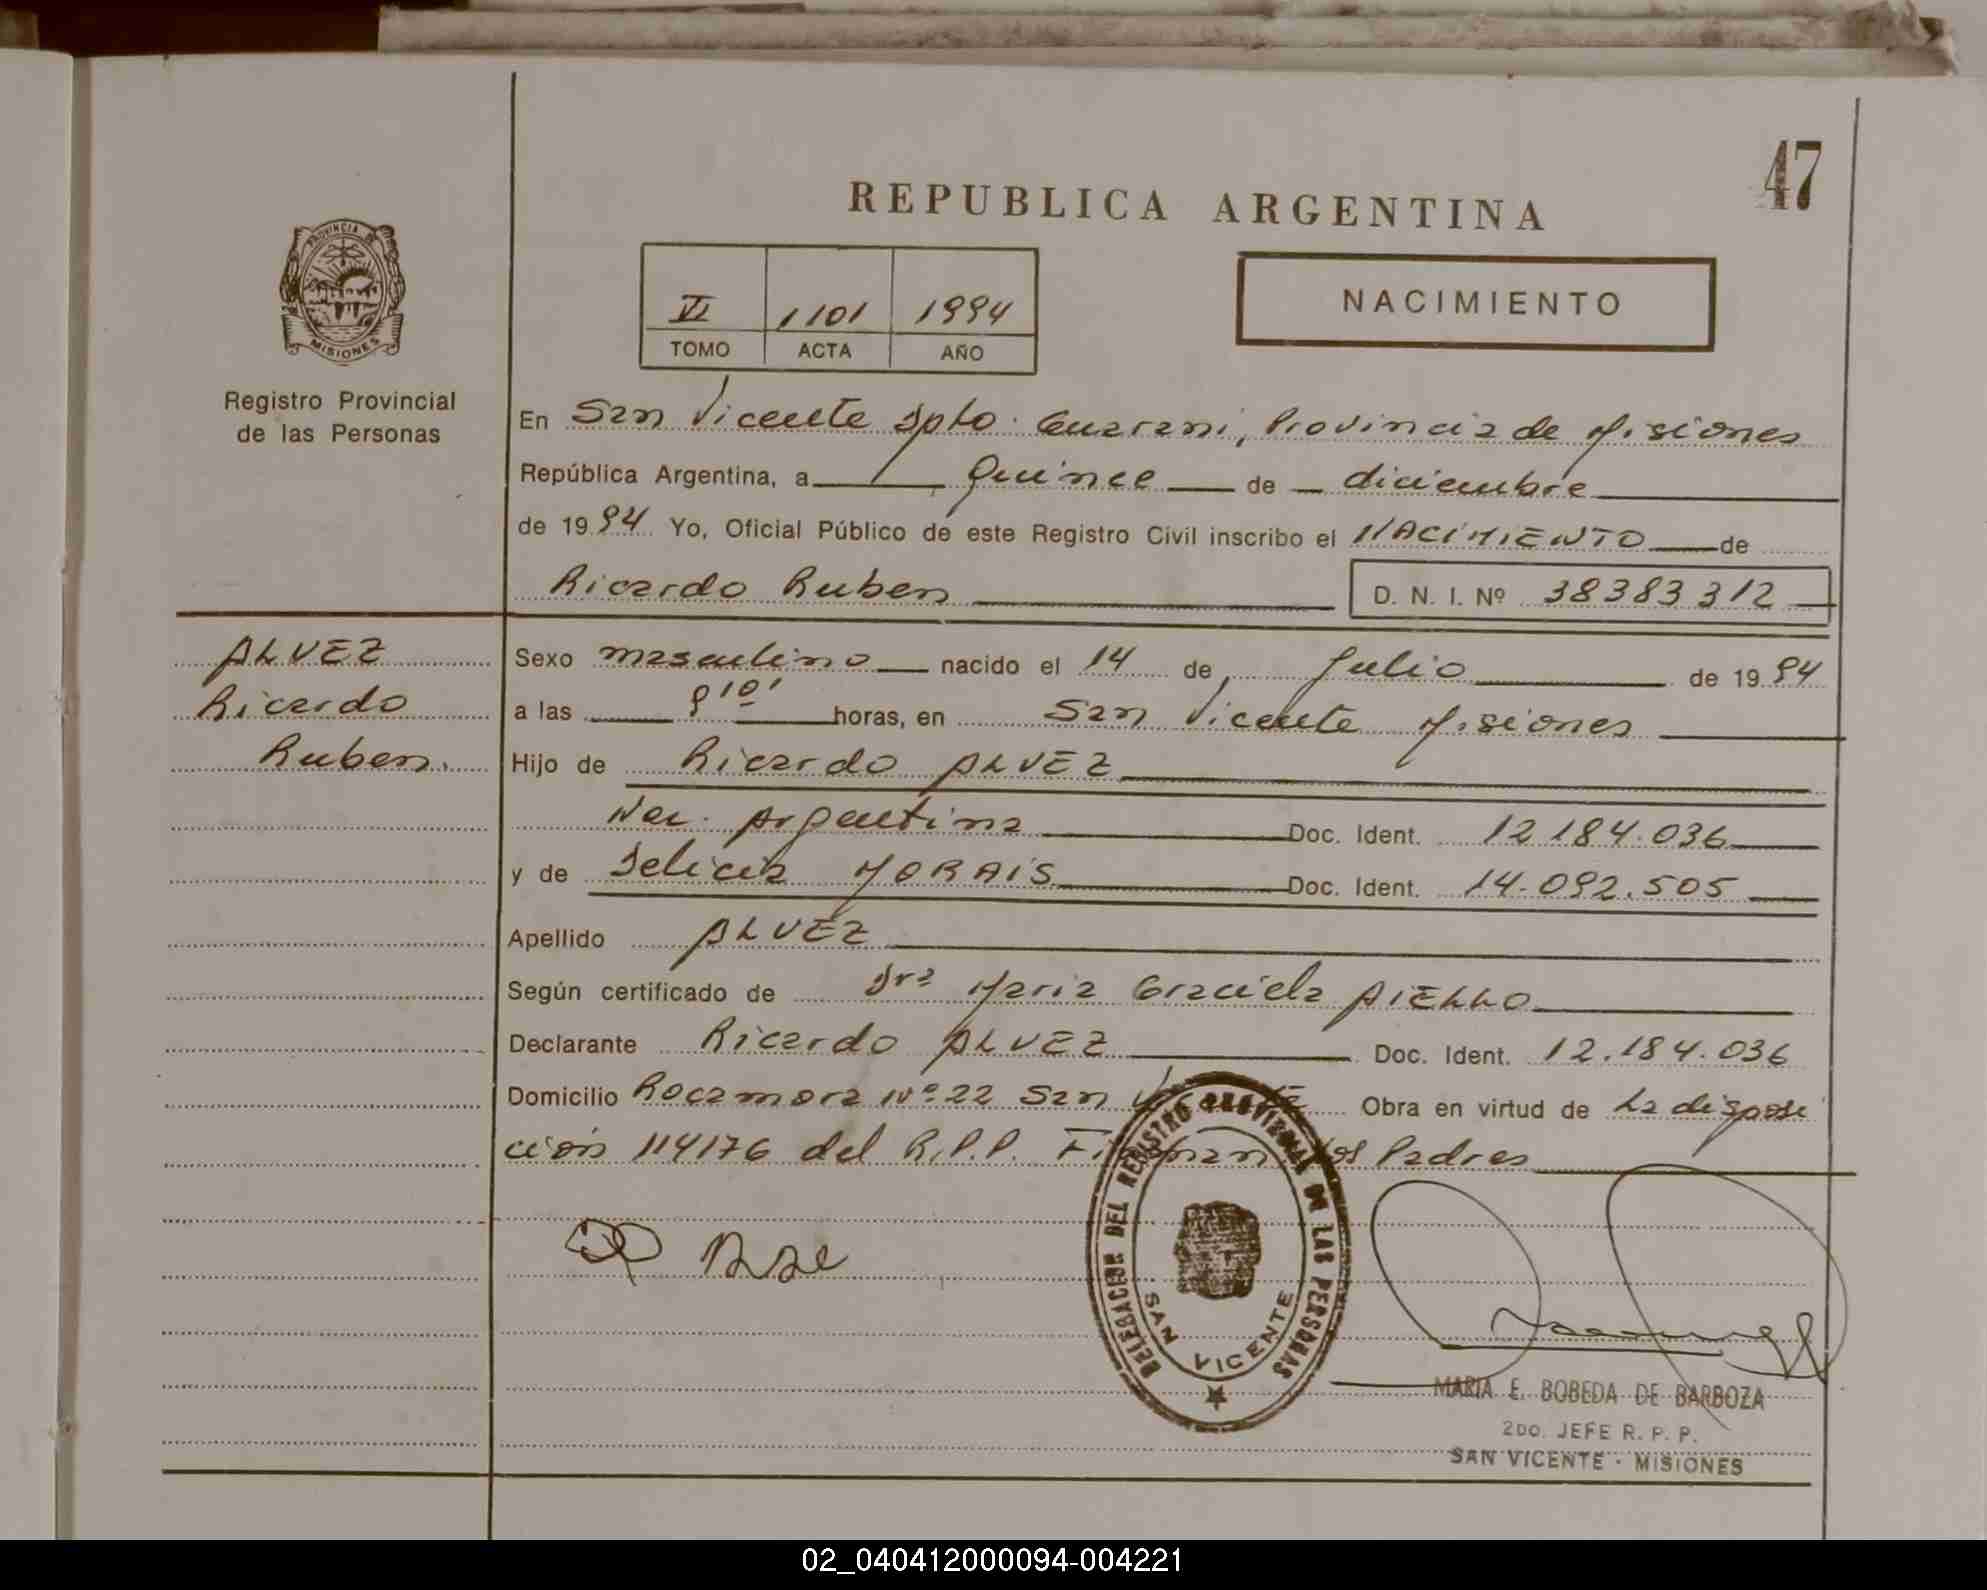 47
REPUBLICA ARGENTINA
PROVINCIA DE
MISIONES
Registro Provincial
de las Personas
VI 1101 1994
TOMO ACTA AÑO
NACIMIENTO
En San Vicente Dpto. Guarani, Provincia de Misiones
República Argentina, a Quince de diciembre
de 19 94 Yo, Oficial Público de este Registro Civil inscribo el NACIMIENTO de
Ricardo Ruben D. N. I. Nº 38383312
ALVEZ
Ricardo
Ruben.
Sexo masculino nacido el 14 de Julio de 19 94
a las 8'10' horas, en San Vicente Misiones
Hijo de Ricardo ALVEZ
Nac. Argentina Doc. Ident. 12184.036
y de Delicia MORAIS Doc. Ident. 14.092.505
Apellido ALVEZ
Según certificado de Dra Maria Graciela AIELLO
Declarante Ricardo ALVEZ Doc. Ident. 12.184.036
Domicilio Rocamora Nº 22 San Vicente Obra en virtud de La disposi
ción 114176 del R.P.P. Firman los Padres
DELEGACION DEL REGISTRO PROVINCIAL DE LAS PERSONAS
SAN VICENTE
MARIA E. BOBEDA DE BARBOZA
2DO. JEFE R. P. P.
SAN VICENTE - MISIONES
02_040412000094-004221